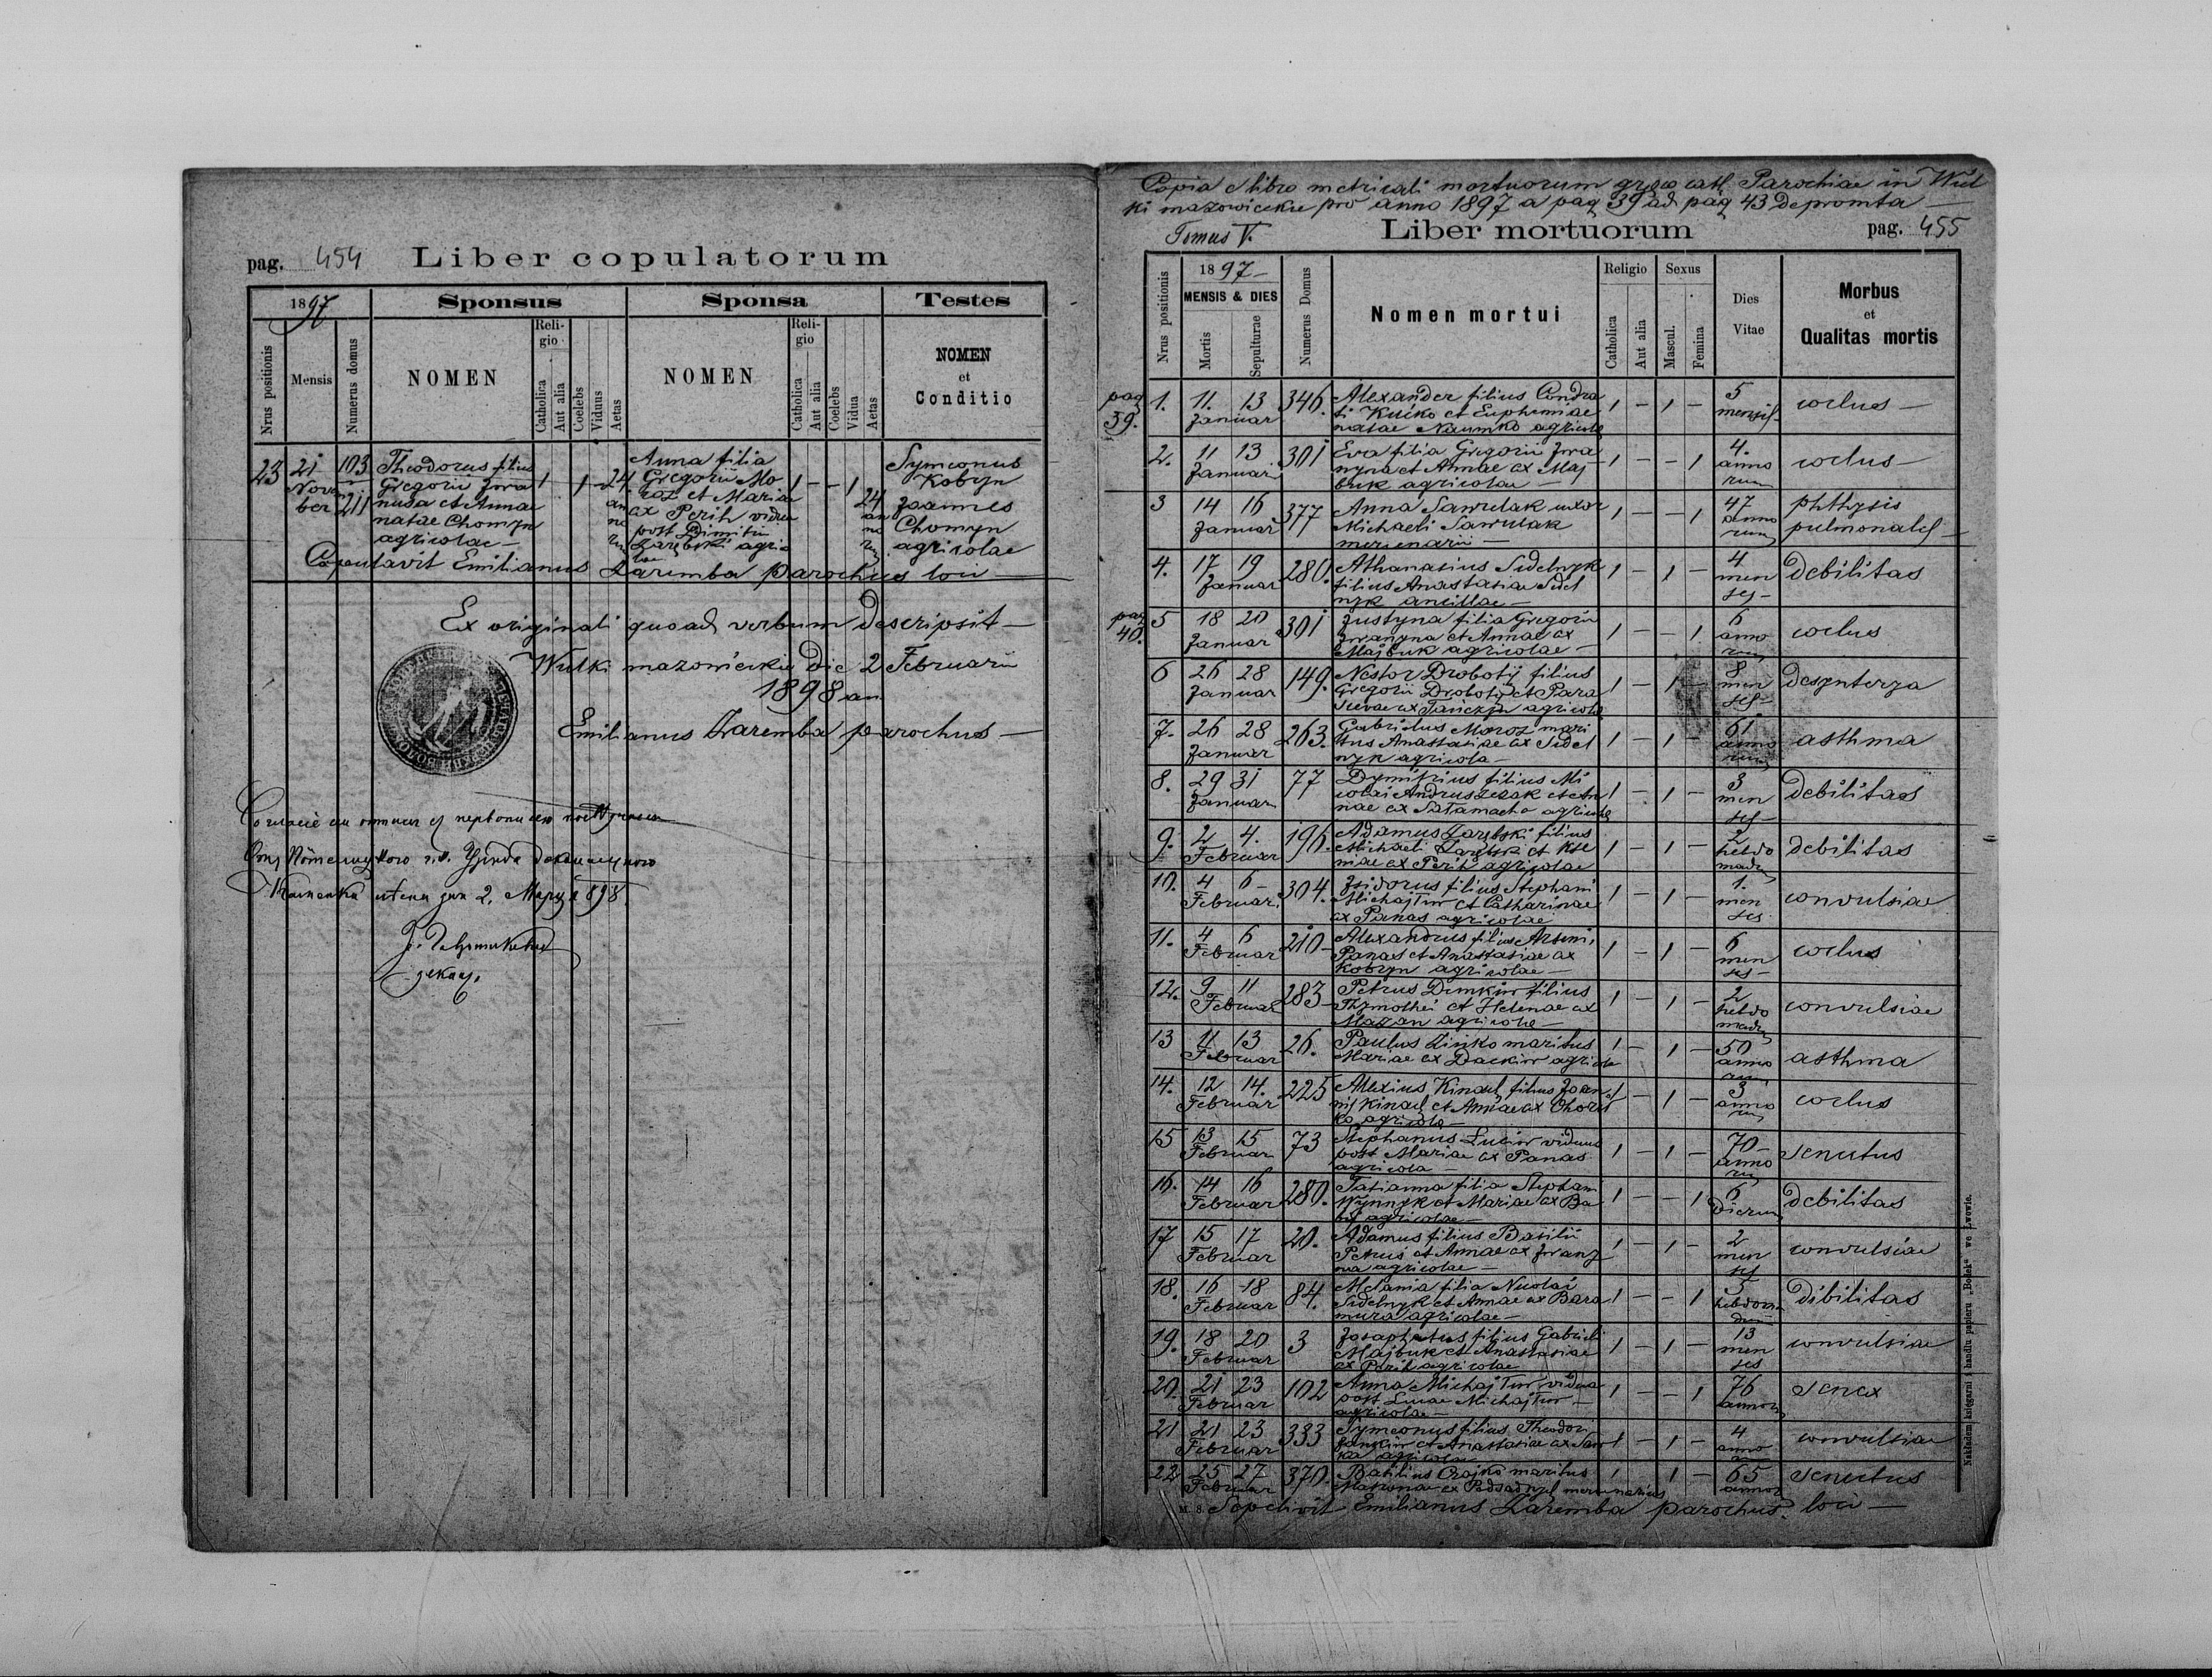 pag. 454 Liber copulatorum
1897 Sponsus Sponsa Testes
Nrus positionis Mensis Numerus domus NOMEN Religio Catholica Aut alia Coelebs Viduus Aetas NOMEN Religio Catholica Aut alia Coelebs Vidua Aetas NOMEN et Conditio
23 21 Novem ber 103 211
Theodorus filius
Gregorii Iwa
nusa et Anna
natae Chomyn
agricolae —
1 1 — 24 an no rum
Anna filia
Gregorii Mo
roz et Mariae
ex Perih vidua
post Dimitrii
Zarębski agri
colae
1 — — 1 24 an no rum
Symeonus
Kobyn
Joannes
Chomyn
agricolae
Copulavit Emilianus Zaremba parochus loci —
Ex originali quoad verbum descripsit —
Wulki mazowieckie die 2 Februarii
1898 an
Emilianus Zaremba parochus —
декан
Copia e libro metricali mortuorum graeco cath Parochiae in Wul
ki mazowieckie pro anno 1897 a pag 39 ad pag 43 depromta —
Tomus V. Liber mortuorum pag. 455
Nrus positionis 1897 MENSIS & DIES Mortis Sepulturae Numerus Domus Nomen mortui Religio Catholica Aut alia Sexus Mascul. Femina Dies Vitae Morbus et Qualitas mortis
pag 39.
1. 11. 13 Januar 346.
Alexander filius Condra
ti Kućko et Euphemiae
natae Naumko agricolae
1 — 1 — 5 mensis coclus —
2. 11 13 Januar 301
Eva filia Gregorii Iwa
nyna et Annae ex Maj
buk agricolae —
1 — — 1 4. anno rum coclus —
3 14 16 Januar 377
Anna Sawulak uxor
Michaeli Sawulak
mercenarii —
1 — — 1 47 anno rum phthysis pulmonales —
4. 17 19 Januar 280.
Athanasius Sidelnyk
filius Anastasiae Sidel
nyk ancillae —
1 — 1 — 4 men ses — debilitas
pag 40.
5 18 20 Januar 301
Justyna filia Gregorii
Iwanyna et Annae ex
Majbuk agricolae —
1 — — 1 6 anno rum coclus
6 26 28 Januar 149.
Nestor Drobotij filius
Gregorii Drobotij et Para
scevae ex Tańczyn agricolae
1 — 1 — 8 men ses — desynterya
7. 26 28 Januar 263.
Gabrielus Moroz mari
tus Anastasiae ex Sidel
nyk agricola —
1 — 1 — 61 anno rum asthma
8. 29 31 Januar 77
Dymitrius filius Mi
colai Andruszczak et An
nae ex Sałamacha agricolae
1 — 1 — 3 men ses — debilitas
9. 2 4. Februar 196.
Adamus Zarębski filius
Michaeli Zarębski et Kse
niae ex Perih agricolae
1 — 1 — 2 hebdo madum debilitas
10. 4 6 — Februar. 304.
Isidorus filius Stephani
Michajłiw et Catharinae
ex Panas agricolae
1 — 1 — 1. men ses convulsiae
11. 4 6 Februar 210 —
Alexandrus filius Arseni,
Panas et Anastasiae ex
Kobryn agricolae —
1 — 1 — 6 men ses — coclus
12. 9 11 Februar 283
Petrus Dumkiw filius
Thymothei et Helenae ex
Mazan agricolae —
1 — 1 — 2 hebdo madum convulsiae
13 11 13 Februar 26.
Paulus Zińko maritus
Mariae ex Dackiw agricola
1 — 1 — 50 anno rum asthma
14. 12 14. Februar 225
Alexius Kinach filius Joan
nis Kinach et Annae ex Chorosz
ko agricolae —
1 — 1 — 3 anno rum coclus
15 13 15 Februar 73
Stephanus Luciw viduus
post Mariae ex Panas
agricola —
1 — 1 — 70 — anno rum senectus
16. 14 16 Februar 280.
Tatianna filia Stephani
Wynnyk et Mariae ex Ba
bij agricolae —
1 — — 1 6 dierum debilitas
17 15 17 Februar 20.
Adamus filius Basilii
Petruś et Annae ex Iwany
na agricolae —
1 — 1 — 2 men ses convulsiae
18. 16 18 Februar 84.
Melania filia Nicolai
Sidelnyk et Annae ex Bara
mura agricolae —
1 — — 1 5 hebdoma dum dibilitas
19. 18 20 Februar 3
Josaphatus filius Gabrieli
Majbuk et Anastasiae
ex Perih agricolae
1 — 1 — 13 men ses convulsiae
20. 21 23 Februar 102
Anna Michajłiw vidua
post Lucae Michajłiw —
agricolae —
1 — — 1 76 annorum senex
21 21 23 Februar 333
Symeonus filius Theodori
Jankiw et Anastasiae ex Saw
ka agricolae
1 — 1 — 4 anno rum convulsiae
22 25 27 Februar 370.
Basilius Czajko maritus
Matronae ex Podsadnyj mercenarius
1 1 — 65 annorum senectus
M. S. Sepelivit Emilianus Zaremba parochus loci —
Nakładem księgarni i handlu papieru „Bodek" we Lwowie.